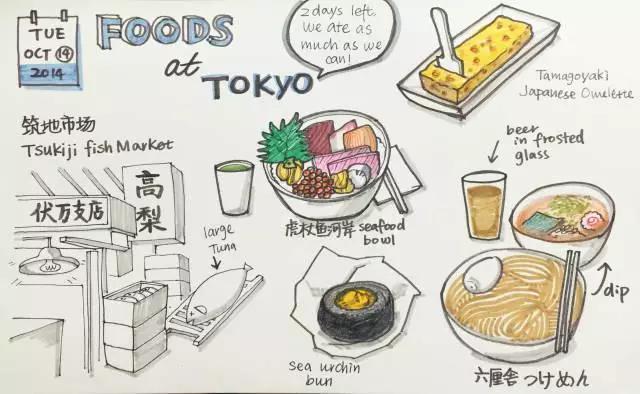 TUE
OCT 14
2014
FOODS
at
TOKYO
2 days left,
we ate as
much as we
can!
Tamagoyaki
Japanese Omelette
筑地市场
Tsukiji fish Market
高梨
伏万支店
large
Tuna
虎杖鱼河岸 seafood
bowl
beer
in frosted
glass
dip
sea urchin
bun
六厘舎 つけめん